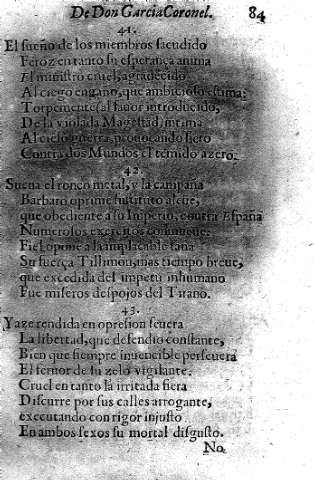 De Don Garcia Coronel. 84
41.
El sueño de los miembros sacudido
Feroz en tanto su esperança anima
El ministro cruel, agradecido
Al ciego engaño, que ambicioso estima:
Torpemente al fauor introducido,
De la violada Magestad, intima
Al cielo guerra, prouocando fiero
Contra dos Mundos el temido azero.
42.
Suena el ronco metal, y la campaña
Barbaro oprime sustituto aleue,
que obediente a su Imperio, contra España
Numerosos exercitos conmueue:
Fiel opone a la implacable saña
Su fuerça Tilli mas tiempo breue,
que excedida del impetu inhumano
Fue miseros despojos del Tirano.
43.
Yaze rendida en opresion seuera
La libertad, que defendio constante,
Bien que siempre inuencible perseuera
El feruor de su zelo vigilante:
Cruel en tanto la irritada fiera
Discurre por sus calles arrogante,
executando con rigor injusto
En ambos sexos su mortal disgusto.
No